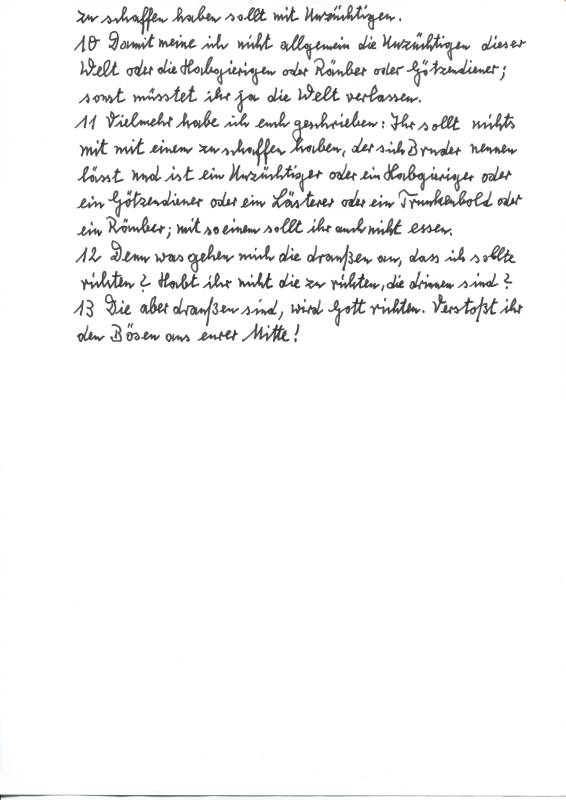 zu schaffen haben sollt mit Unzüchtigen.
10 Damit meine ich nicht allgemein die Unzüchtigen dieser
Welt oder die Habgierigen oder Räuber oder Götzendiener;
sonst müsstet ihr ja die Welt verlassen.
11 Vielmehr habe ich euch geschrieben: Ihr sollt nichts
mit mit einem zu schaffen haben, der sich Bruder nennen
lässt und ist ein Unzüchtiger oder ein Habgieriger oder
ein Götzendiener oder ein Lästerer oder ein Trunkenbold oder
ein Räuber; mit so einem sollt ihr auch nicht essen.
12 Denn was gehen mich die draußen an, dass ich sollte
richten? Habt ihr nicht die zu richten, die drinnen sind?
13 Die aber draußen sind, wird Gott richten. Verstoßt ihr
den Bösen aus eurer Mitte!